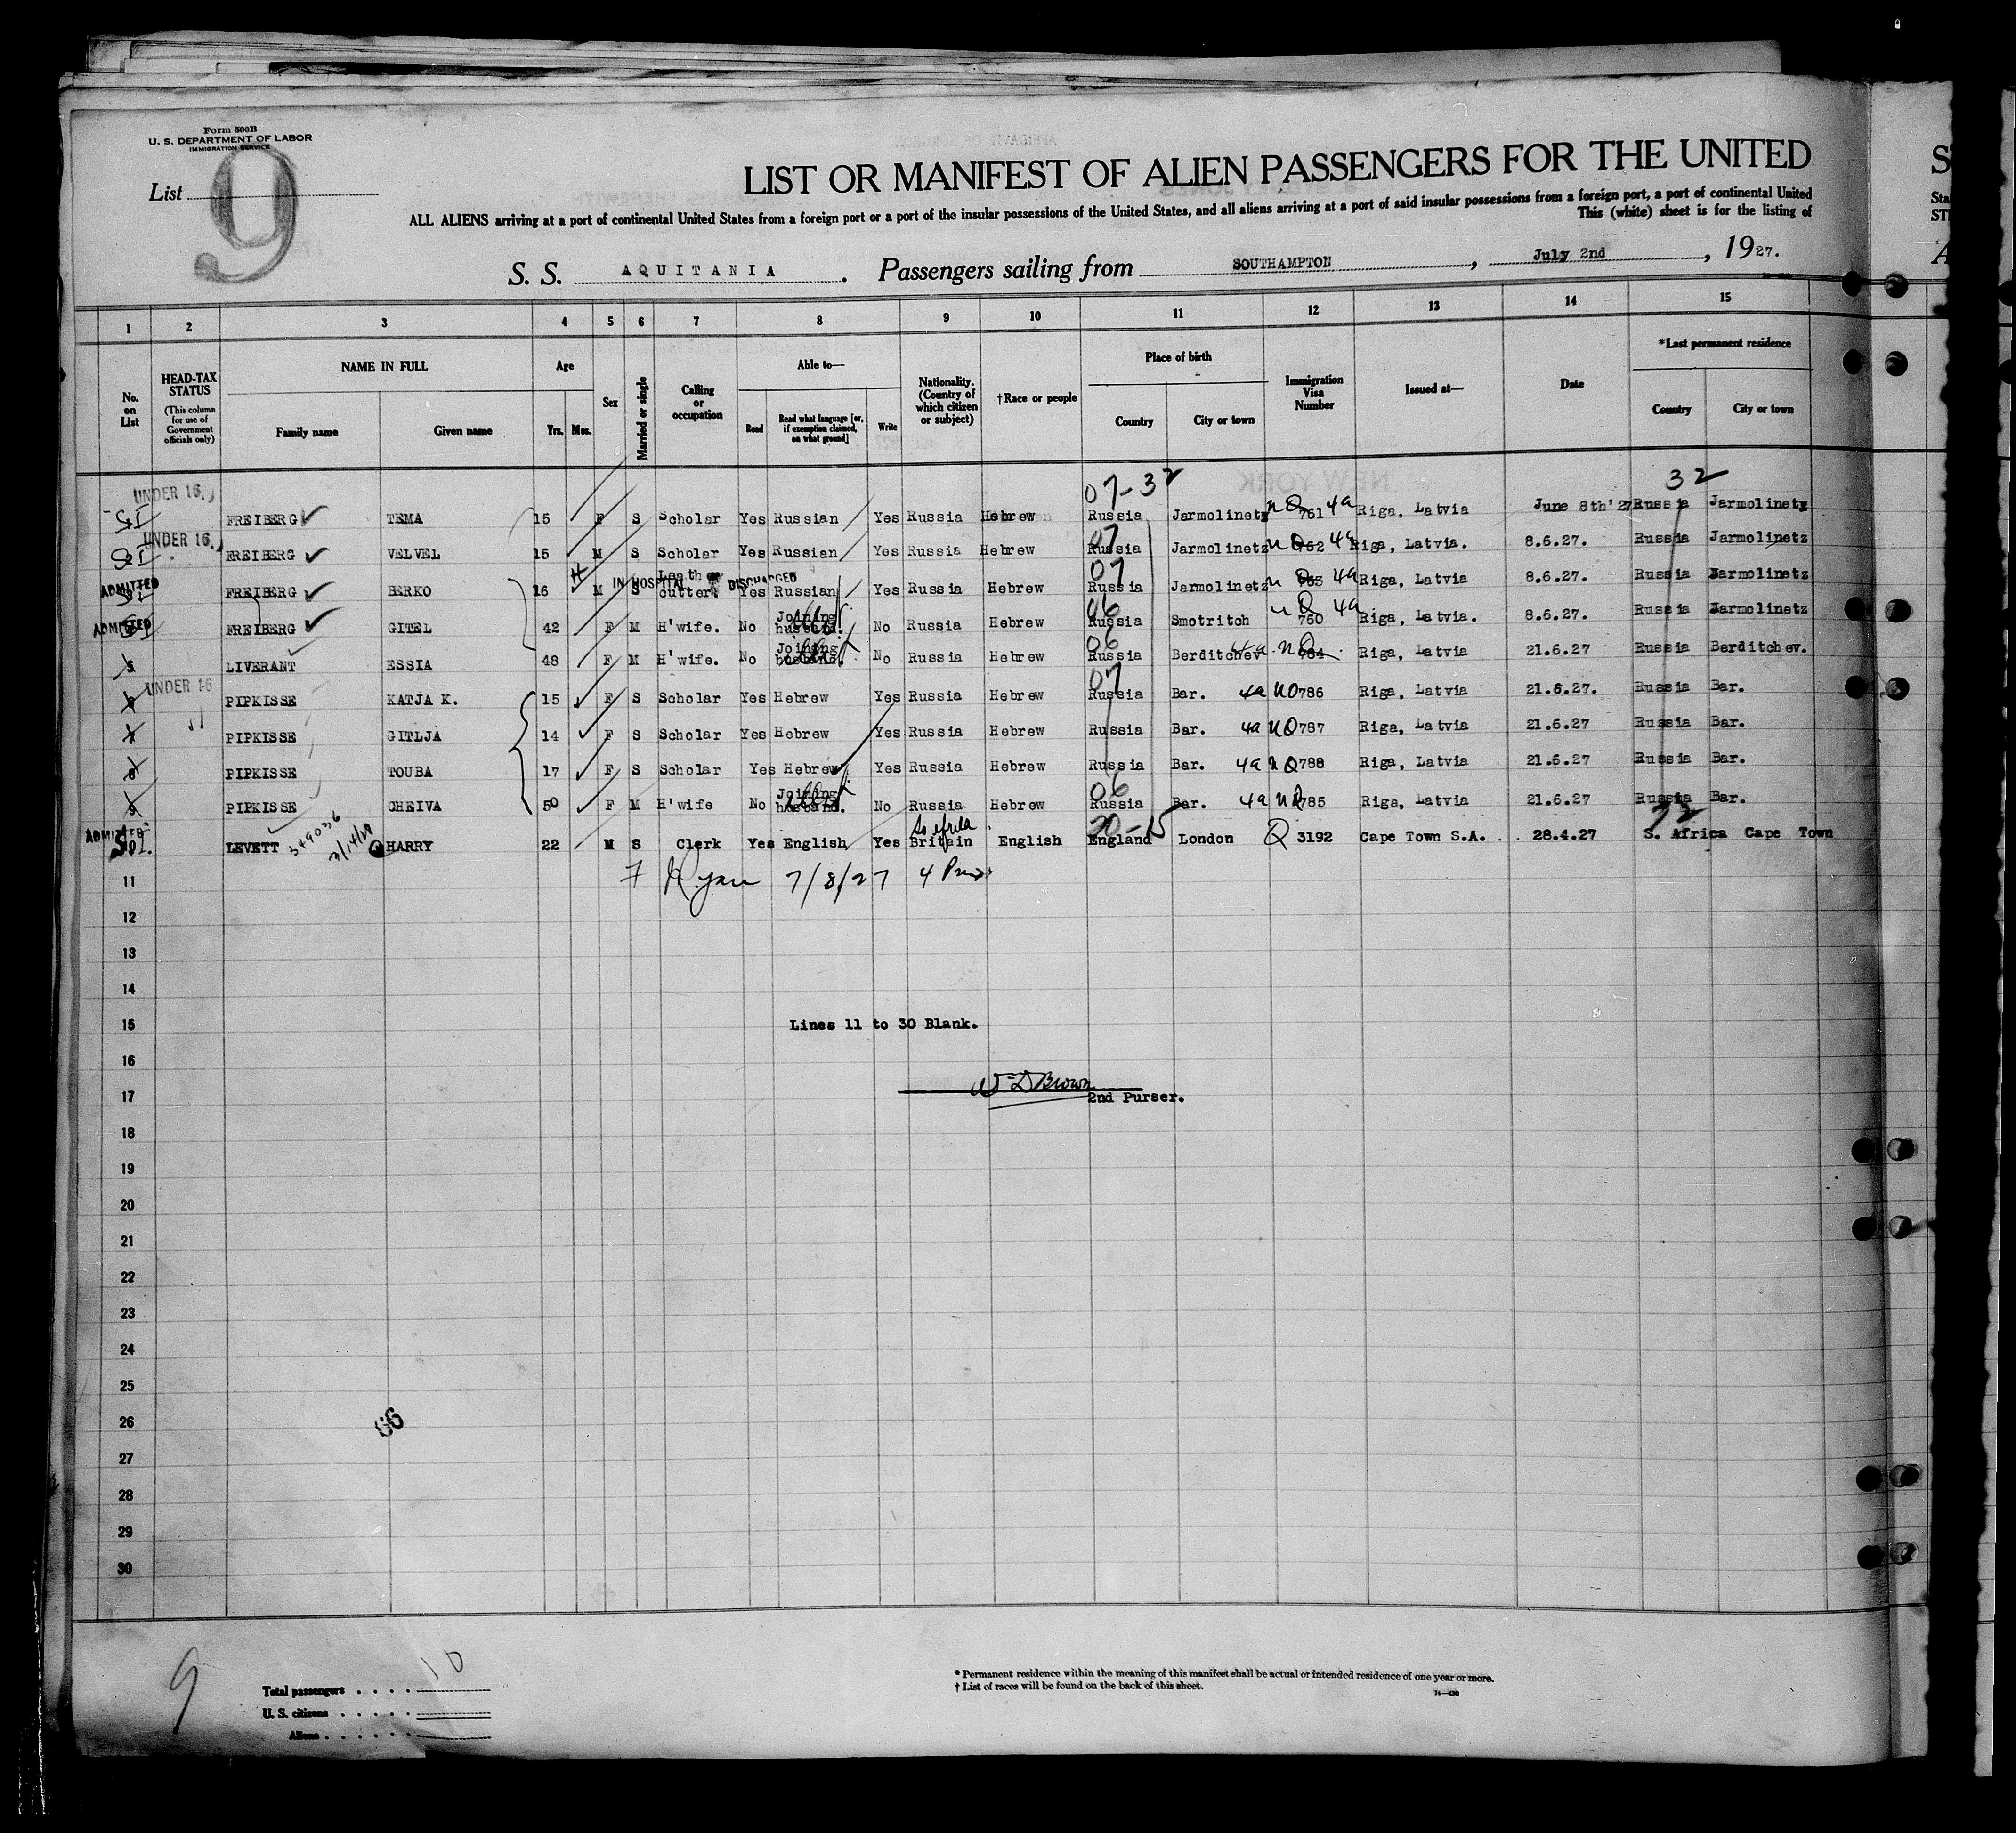 Form 500B
U. S. DEPARTMENT OF LABOR
IMMIGRATION SERVICE
List 9
LIST OR MANIFEST OF ALIEN PASSENGERS FOR THE UNITED
ALL ALIENS arriving at a port of continental United States from a foreign port or a port of the insular possessions of the United States, and all aliens arriving at a port of said insular possessions from a foreign port, a port of continental United
This (white) sheet is for the listing of
S. S. AQUITANIA. Passengers sailing from SOUTHAMPTON, July 2nd, 1927.
1 2 3 4 5 6 7 8 9 10 11 12 13 14 15
No. on List
HEAD-TAX STATUS (This column for use of Government officials only)
NAME IN FULL
Family name Given name
Age
Yrs. Mos.
Sex
Married or single
Calling or occupation
Able to—
Read Read what language [or, if exemption claimed, on what ground] Write
Nationality. (Country of which citizen or subject)
†Race or people
Place of birth
Country City or town
Immigration Visa Number
Issued at—
Date
*Last permanent residence
Country City or town
07-32 32
UNDER 16.
SI FREIBERG TEMA 15 F S Scholar Yes Russian Yes Russia Hebrew Russia Jarmolinetz nQ 761 4a Riga, Latvia June 8th'27 Russia Jarmolinetz
UNDER 16.
SI FREIBERG VELVEL 15 M S Scholar Yes Russian Yes Russia Hebrew 07 Russia Jarmolinetz nQ 762 4a Riga, Latvia. 8.6.27. Russia Jarmolinetz
ADMITTED IN HOSPITAL DISCHARGED
FREIBERG BERKO 16 M S Leather cutter. Yes Russian Yes Russia Hebrew 07 Russia Jarmolinetz nQ 763 4a Riga, Latvia 8.6.27. Russia Jarmolinetz
ADMITTED FREIBERG GITEL 42 F M H'wife. No Joining husband. No Russia Hebrew 06 Russia Smotritch nQ 760 4a Riga, Latvia. 8.6.27. Russia Jarmolinetz
5 LIVERANT ESSIA 48 F M H'wife. No Joining husband. No Russia Hebrew 06 Russia Berditchev 4a nQ 784 Riga, Latvia 21.6.27 Russia Berditchev.
UNDER 16
6 PIPKISSE KATJA K. 15 F S Scholar Yes Hebrew Yes Russia Hebrew 07 Russia Bar. 4a nQ 786 Riga, Latvia 21.6.27. Russia Bar.
7 PIPKISSE GITLJA 14 F S Scholar Yes Hebrew Yes Russia Hebrew Russia Bar. 4a nQ 787 Riga, Latvia 21.6.27 Russia Bar.
8 PIPKISSE TOUBA 17 F S Scholar Yes Hebrew Yes Russia Hebrew Russia Bar. 4a nQ 788 Riga, Latvia 21.6.27 Russia Bar.
9 PIPKISSE CHEIVA 50 F M H'wife No Joining husband. No Russia Hebrew 06 Russia Bar. 4a nQ 785 Riga, Latvia 21.6.27 Russia Bar.
ADMITTED 10 LEVETT 3/14/29 HARRY 22 M S Clerk Yes English Yes So Africa Britain English England London Q 3192 Cape Town S.A. 28.4.27 72 S. Africa Cape Town
11 Ryan 7/8/27
12
13
14
15 Lines 11 to 30 Blank.
16
W D Brown
17 2nd Purser.
18
19
20
21
22
23
24
25
26
66
27
28
29
30
9
Total passengers . . . . 10
U. S. citizens . . . . .
Aliens . . . . . .
* Permanent residence within the meaning of this manifest shall be actual or intended residence of one year or more.
† List of races will be found on the back of this sheet.